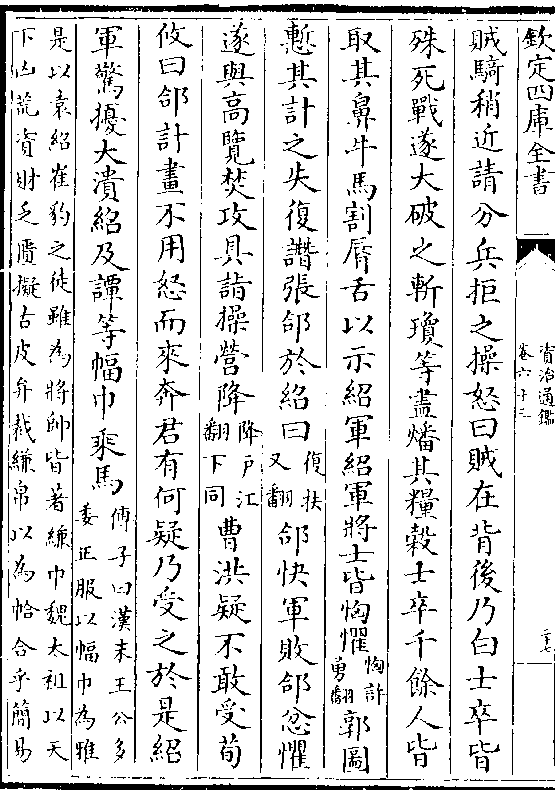 欽定四庫全書
資治通鑑
卷六十三
賊騎稍近請分兵拒之操怒曰賊在背後乃白士卒皆
殊死戰遂大破之斬瓊等盡燔其糧榖士卒千餘人皆
取其鼻牛馬割脣舌以示紹軍紹軍將士皆恟懼
恟許
勇翻
郭圖
慙其計之失復譖張郃於紹曰
復扶
又翻
郃快軍敗郃忿懼
遂與高覽焚攻具詣操營降
降戶江
翻下同
曹洪疑不敢受荀
攸曰郃計畫不用怒而來奔君有何疑乃受之於是紹
軍驚擾大潰紹及譚等幅巾乘馬
傅子曰漢末王公多
委正服以幅巾為雅
是以袁紹崔豹之徒雖為將帥皆著縑巾魏太祖以天
下凶荒資財乏匱擬古皮弁裁縑帛以為帢合乎簡易